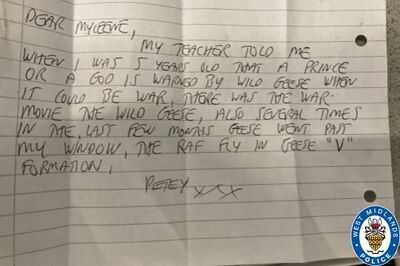 DEAR MYLEENE,
MY TEACHER TOLD ME
WHEN I WAS 5 YEARS OLD THAT A PRINCE
OR A GOD IS WARNED BY WILD GEESE WHEN
IT COULD BE WAR, THERE WAS THE WAR
MOVIE THE WILD GEESE, ALSO SEVERAL TIMES
IN THE, LAST FEW MONTHS GEESE WENT PAST
MY WINDOW, THE RAF FLY IN GEESE "V"
FORMATION,
PETEY XXX
WEST MIDLANDS
POLICE